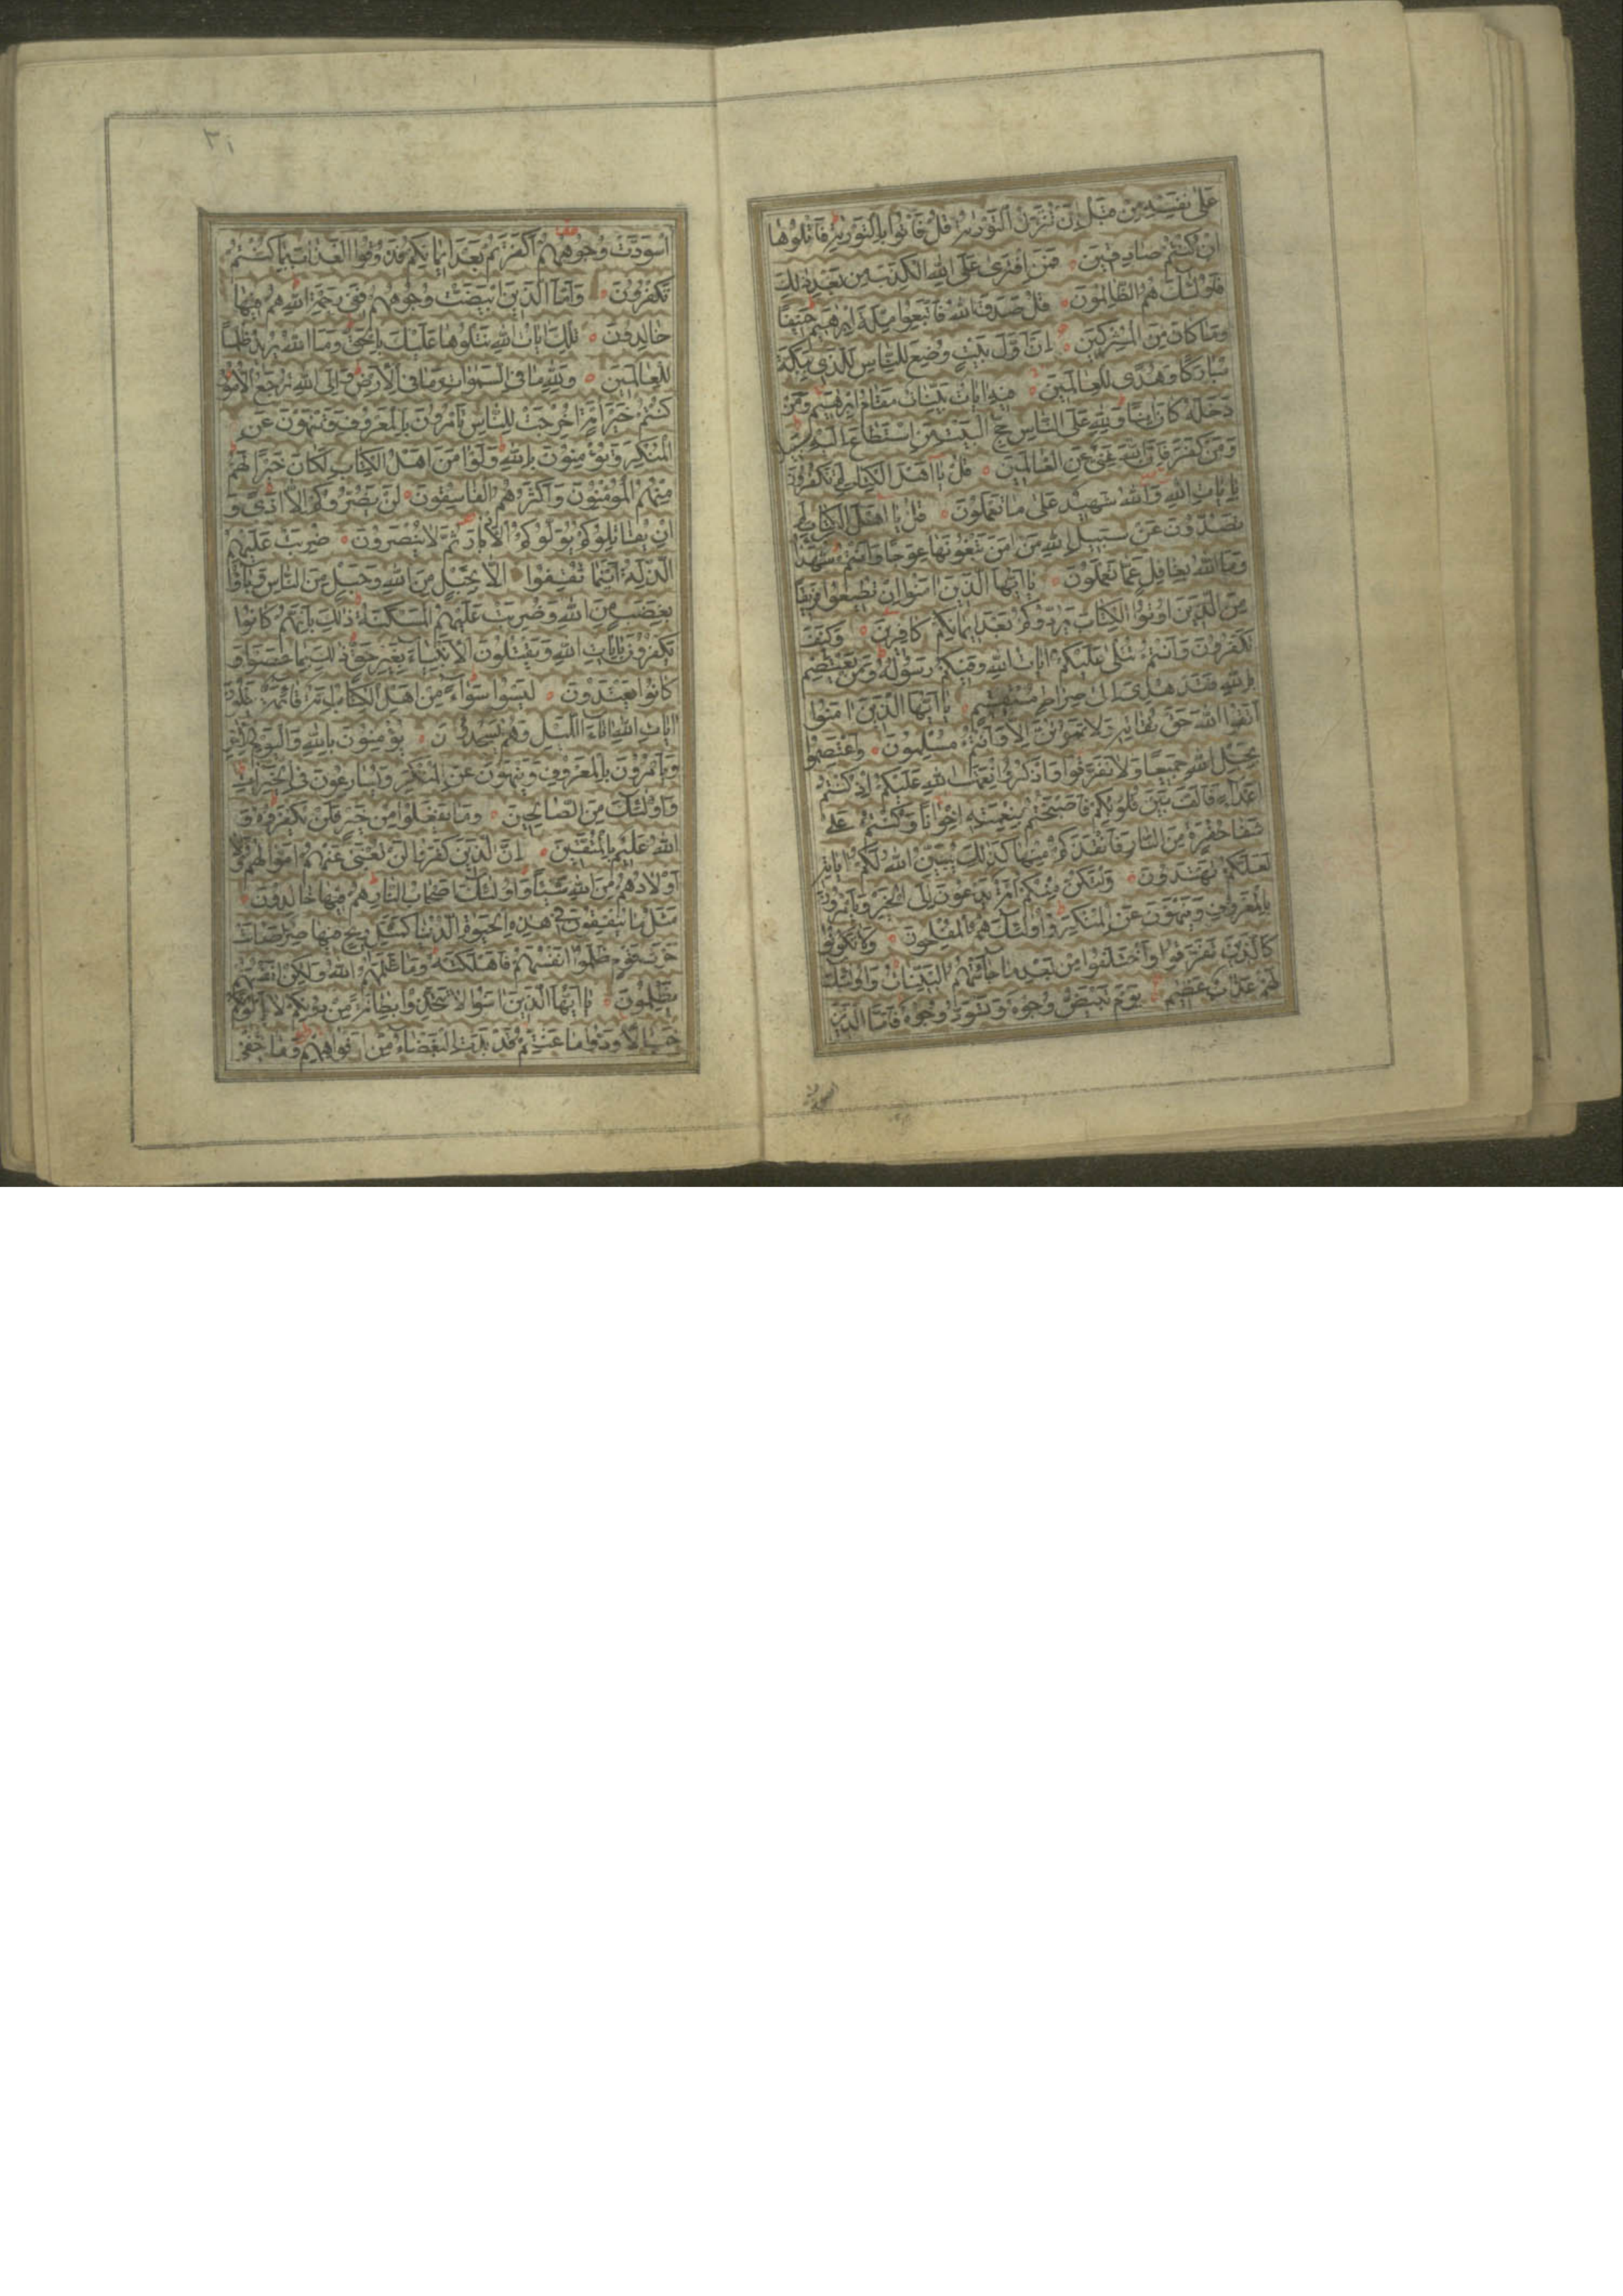 عَلىٰ نَفْسِهِ مِنْ قَبْلِ اَنْ تُنَزَّلَ التَّوْرٰيةُ قُلْ فَأْتُوا بِالتَّوْرٰيةِ فَاتْلُوهٰا
اِنْ كُنْتُمْ صٰادِقينَ فَمَنِ افْتَرىٰ عَلَى اللهِ الْكَذِبَ مِنْ بَعْدِ ذٰلِكَ
فَاُولٰئِكَ هُمُ الظّٰالِمُونَ قُلْ صَدَقَ اللهُ فَاتَّبِعُوا مِلَّةَ اِبْرٰهيمَ حَنيفًا
وَمٰا كٰانَ مِنَ الْمُشْرِكينَ اِنَّ اَوَّلَ بَيْتٍ وُضِعَ لِلنّٰاسِ لَلَّذي بِبَكَّةَ
مُبٰارَكًا وَهُدًى لِلْعٰالَمينَ فيهِ اٰيٰاتٌ بَيِّنٰاتٌ مَقٰامُ اِبْرٰهيمَ وَمَنْ
دَخَلَهُ كٰانَ اٰمِنًا وَلِلّٰهِ عَلَى النّٰاسِ حِجُّ الْبَيْتِ مَنِ اسْتَطٰاعَ اِلَيْهِ سَبيلًا
وَمَنْ كَفَرَ فَاِنَّ اللهَ غَنِيٌّ عَنِ الْعٰالَمينَ قُلْ يٰا اَهْلَ الْكِتٰابِ لِمَ تَكْفُرُونَ
بِاٰيٰاتِ اللهِ وَاللهُ شَهيدٌ عَلىٰ مٰا تَعْمَلُونَ قُلْ يٰا اَهْلَ الْكِتٰابِ لِمَ
تَصُدُّونَ عَنْ سَبيلِ اللهِ مَنْ اٰمَنَ تَبْغُونَهٰا عِوَجًا وَاَنْتُمْ شُهَدٰاءُ
وَمَا اللهُ بِغٰافِلٍ عَمّٰا تَعْمَلُونَ يٰا اَيُّهَا الَّذينَ اٰمَنُوا اِنْ تُطيعُوا فَريقًا
مِنَ الَّذينَ اُوتُوا الْكِتٰابَ يَرُدُّوكُمْ بَعْدَ ايمٰانِكُمْ كٰافِرينَ وَكَيْفَ
تَكْفُرُونَ وَاَنْتُمْ تُتْلىٰ عَلَيْكُمْ اٰيٰاتُ اللهِ وَفيكُمْ رَسُولُهُ وَمَنْ يَعْتَصِمْ
بِاللهِ فَقَدْ هُدِيَ اِلىٰ صِرٰاطٍ مُسْتَقيمٍ يٰا اَيُّهَا الَّذينَ اٰمَنُوا
اتَّقُوا اللهَ حَقَّ تُقٰاتِهِ وَلٰا تَمُوتُنَّ اِلّٰا وَاَنْتُمْ مُسْلِمُونَ وَاعْتَصِمُوا
بِحَبْلِ اللهِ جَميعًا وَلٰا تَفَرَّقُوا وَاذْكُرُوا نِعْمَتَ اللهِ عَلَيْكُمْ اِذْ كُنْتُمْ
اَعْدٰاءً فَاَلَّفَ بَيْنَ قُلُوبِكُمْ فَاَصْبَحْتُمْ بِنِعْمَتِهِ اِخْوٰانًا وَكُنْتُمْ عَلىٰ
شَفٰا حُفْرَةٍ مِنَ النّٰارِ فَاَنْقَذَكُمْ مِنْهٰا كَذٰلِكَ يُبَيِّنُ اللهُ لَكُمْ اٰيٰاتِهِ
لَعَلَّكُمْ تَهْتَدُونَ وَلْتَكُنْ مِنْكُمْ اُمَّةٌ يَدْعُونَ اِلَى الْخَيْرِ وَيَأْمُرُونَ
بِالْمَعْرُوفِ وَيَنْهَوْنَ عَنِ الْمُنْكَرِ وَاُولٰئِكَ هُمُ الْمُفْلِحُونَ وَلٰا تَكُونُوا
كَالَّذينَ تَفَرَّقُوا وَاخْتَلَفُوا مِنْ بَعْدِ مٰا جٰاءَهُمُ الْبَيِّنٰاتُ وَاُولٰئِكَ
لَهُمْ عَذٰابٌ عَظيمٌ يَوْمَ تَبْيَضُّ وُجُوهٌ وَتَسْوَدُّ وُجُوهٌ فَاَمَّا الَّذينَ
اسودت
٣١
اسْوَدَّتْ وُجُوهُهُمْ اَكَفَرْتُمْ بَعْدَ ايمٰانِكُمْ فَذُوقُوا الْعَذٰابَ بِمٰا كُنْتُمْ
تَكْفُرُونَ وَاَمَّا الَّذينَ ابْيَضَّتْ وُجُوهُهُمْ فَفي رَحْمَةِ اللهِ هُمْ فيهٰا
خٰالِدُونَ تِلْكَ اٰيٰاتُ اللهِ نَتْلُوهٰا عَلَيْكَ بِالْحَقِّ وَمَا اللهُ يُريدُ ظُلْمًا
لِلْعٰالَمينَ وَلِلّٰهِ مٰا فِي السَّمٰوٰاتِ وَمٰا فِي الْاَرْضِ وَاِلَى اللهِ تُرْجَعُ الْاُمُورُ
كُنْتُمْ خَيْرَ اُمَّةٍ اُخْرِجَتْ لِلنّٰاسِ تَأْمُرُونَ بِالْمَعْرُوفِ وَتَنْهَوْنَ عَنِ
الْمُنْكَرِ وَتُؤْمِنُونَ بِاللهِ وَلَوْ اٰمَنَ اَهْلُ الْكِتٰابِ لَكٰانَ خَيْرًا لَهُمْ
مِنْهُمُ الْمُؤْمِنُونَ وَاَكْثَرُهُمُ الْفٰاسِقُونَ لَنْ يَضُرُّوكُمْ اِلّٰا اَذًى وَ
اِنْ يُقٰاتِلُوكُمْ يُوَلُّوكُمُ الْاَدْبٰارَ ثُمَّ لٰا يُنْصَرُونَ ضُرِبَتْ عَلَيْهِمُ
الذِّلَّةُ اَيْنَمٰا ثُقِفُوا اِلّٰا بِحَبْلٍ مِنَ اللهِ وَحَبْلٍ مِنَ النّٰاسِ وَبٰاؤُا
بِغَضَبٍ مِنَ اللهِ وَضُرِبَتْ عَلَيْهِمُ الْمَسْكَنَةُ ذٰلِكَ بِاَنَّهُمْ كٰانُوا
يَكْفُرُونَ بِاٰيٰاتِ اللهِ وَيَقْتُلُونَ الْاَنْبِيٰاءَ بِغَيْرِ حَقٍّ ذٰلِكَ بِمٰا عَصَوْا وَ
كٰانُوا يَعْتَدُونَ لَيْسُوا سَوٰاءً مِنْ اَهْلِ الْكِتٰابِ اُمَّةٌ قٰائِمَةٌ يَتْلُونَ
اٰيٰاتِ اللهِ اٰنٰاءَ اللَّيْلِ وَهُمْ يَسْجُدُونَ يُؤْمِنُونَ بِاللهِ وَالْيَوْمِ الْاٰخِرِ
وَيَأْمُرُونَ بِالْمَعْرُوفِ وَيَنْهَوْنَ عَنِ الْمُنْكَرِ وَيُسٰارِعُونَ فِي الْخَيْرٰاتِ
وَاُولٰئِكَ مِنَ الصّٰالِحينَ وَمٰا يَفْعَلُوا مِنْ خَيْرٍ فَلَنْ يُكْفَرُوهُ وَ
اللهُ عَليمٌ بِالْمُتَّقينَ اِنَّ الَّذينَ كَفَرُوا لَنْ تُغْنِيَ عَنْهُمْ اَمْوٰالُهُمْ وَلٰا
اَوْلٰادُهُمْ مِنَ اللهِ شَيْئًا وَاُولٰئِكَ اَصْحٰابُ النّٰارِ هُمْ فيهٰا خٰالِدُونَ
مَثَلُ مٰا يُنْفِقُونَ في هٰذِهِ الْحَيٰوةِ الدُّنْيٰا كَمَثَلِ ريحٍ فيهٰا صِرٌّ اَصٰابَتْ
حَرْثَ قَوْمٍ ظَلَمُوا اَنْفُسَهُمْ فَاَهْلَكَتْهُ وَمٰا ظَلَمَهُمُ اللهُ وَلٰكِنْ اَنْفُسَهُمْ
يَظْلِمُونَ يٰا اَيُّهَا الَّذينَ اٰمَنُوا لٰا تَتَّخِذُوا بِطٰانَةً مِنْ دُونِكُمْ لٰا يَأْلُونَكُمْ
خَبٰالًا وَدُّوا مٰا عَنِتُّمْ قَدْ بَدَتِ الْبَغْضٰاءُ مِنْ اَفْوٰاهِهِمْ وَمٰا تُخْفي